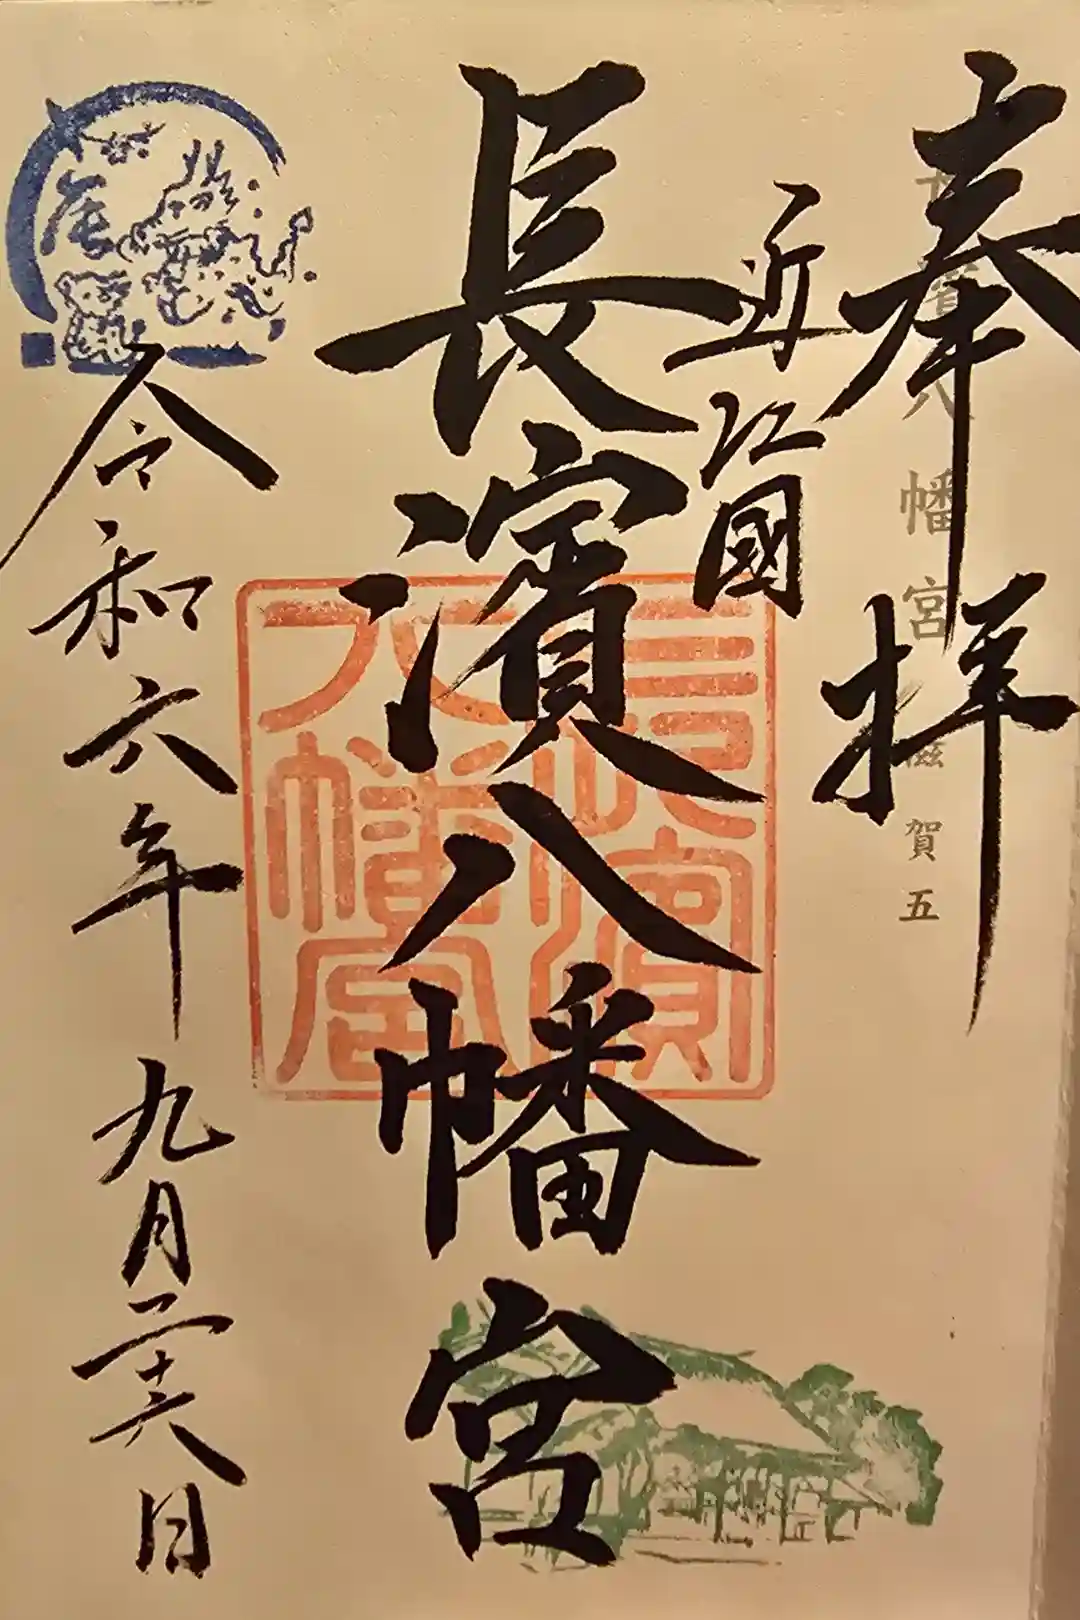 奉拝
長濱八幡宮 滋賀五
近江國
長濱八幡宮
長濱
八幡宮
令和六年九月二十六日